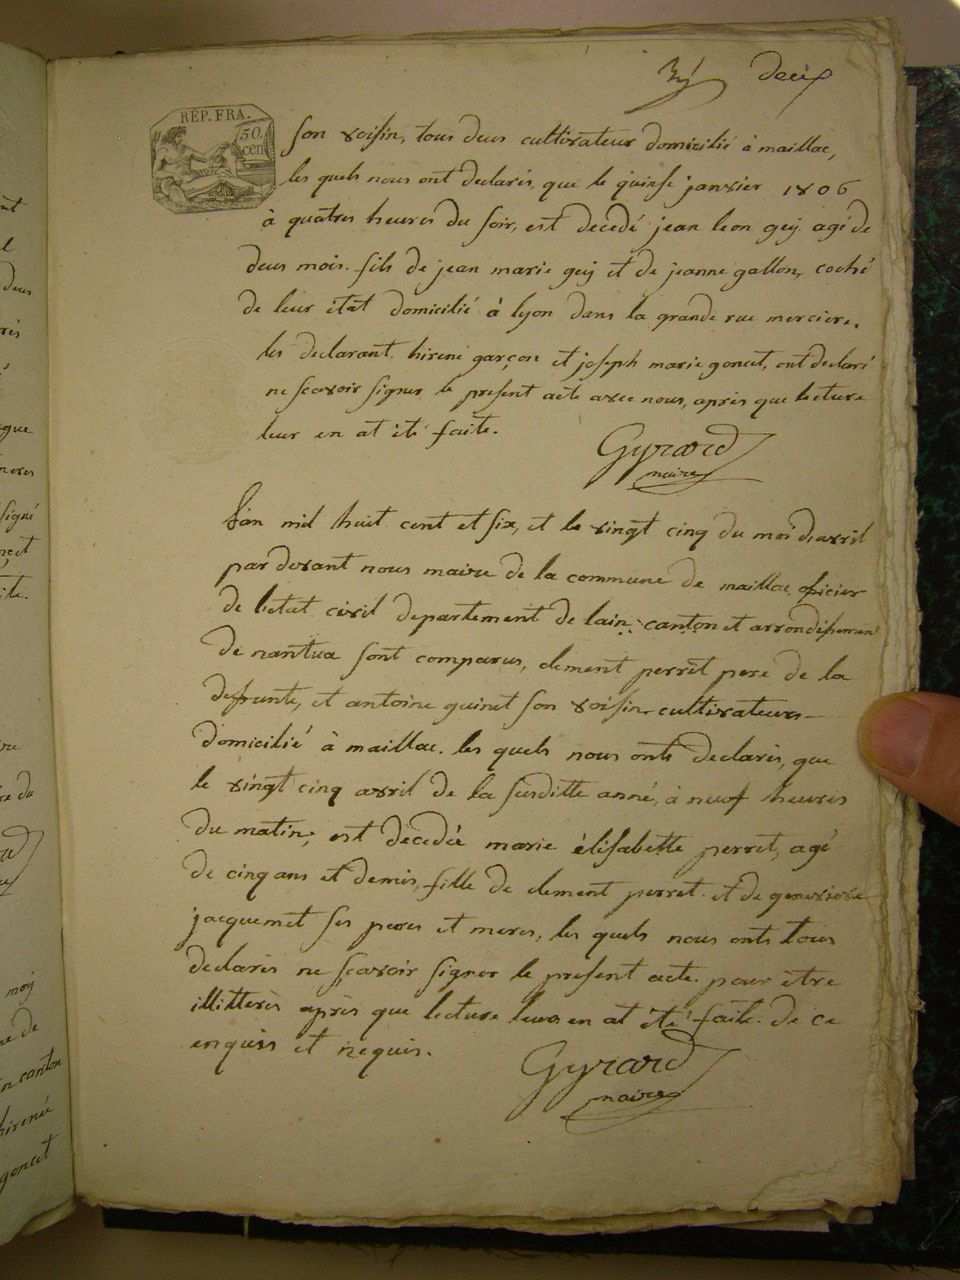 deux
RÉP. FRA.
50
cen
son voisin, tous deus cultivateur domicilié à maillac,
les quels nous ont declarés, que le quinse janvier 1806
à quatres heures du soir, est decedé jean leon guy agé de
deus mois. fils de jean marie guy et de jeanne gallon, coché
de leur état domicilié à lyon dans la grande rue merciere.
les declarant hirené garçon et joseph marie goncet, ont declaré
ne scavoir signer le present acte avec nous, après que lecture
leur en at été faite.
Gyrard
maire
L'an mil huit cent et six, et le vingt cinq du moi d'avril
par devant nous maire de la commune de maillac oficier
de l'etat civil departement de lain canton et arrondissement
de nantua sont comparus, clement perret pere de la
defunte, et antoine guinet son voisin cultivateurs
domicilié à maillac. les quels nous onts declarés, que
le vingt cinq avril de la susditte anné, à neuf heures
du matin, est décedée marie élisabette perret, agé
de cinq ans et demis, fille de clement perret. et de genevieve
jacquemet ses peres et meres, les quels nous onts tous
declarés ne scavoir signer le present acte pour être
illitterés après que lecture leurs en at été faite. de ce
enquis et requis.
Gyrard
maire